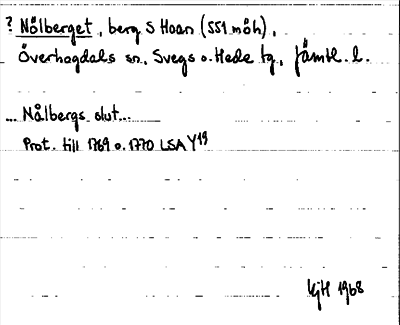 ? Nålberget, berg S Hoan (551 möh),
Överhogdals sn, Svegs o. Hede tg, Jämtl. l.
... Nålbergs slut...
Prot. till 1769 o. 1770 LSA Y19
KjH 1968